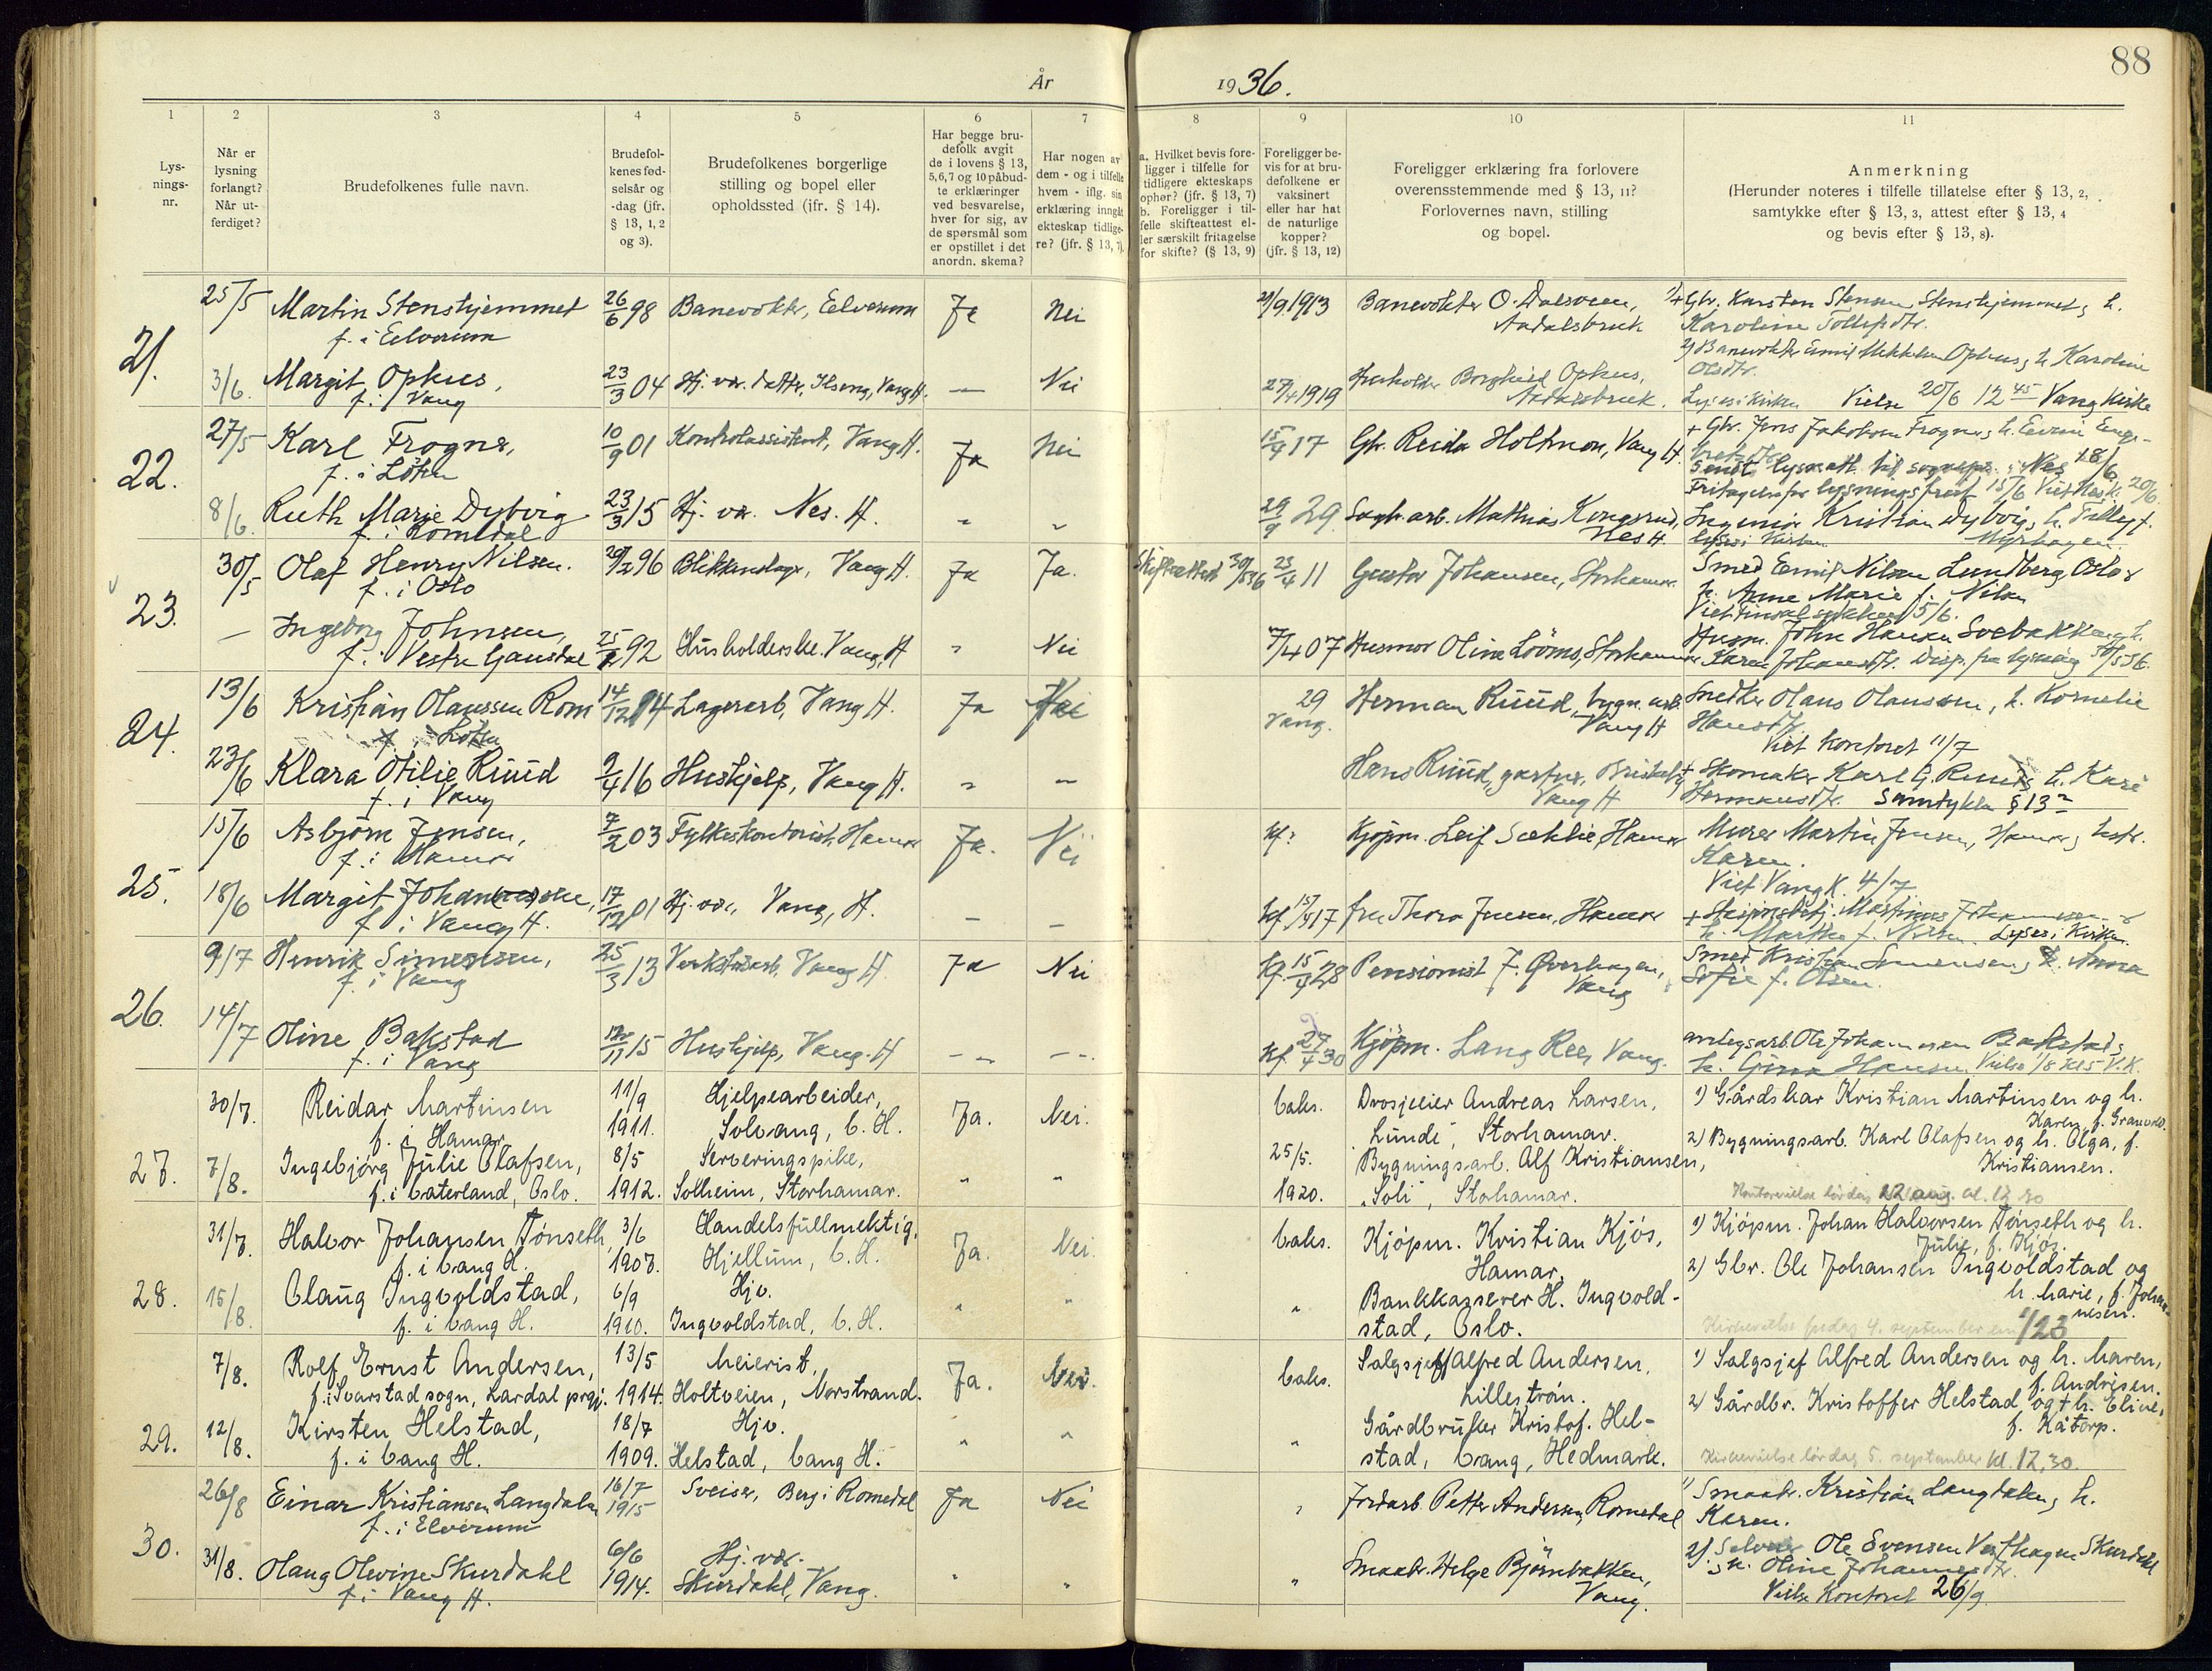 88
År 1936.
1
2
3
4
5
6
7
8
9
10
11
Lys-
nings-
nr.
Når er
lysning
forlangt?
Når ut-
ferdiget?
Brudefolkenes fulle navn.
Brudefol-
kenes fød-
selsår og
-dag (jfr.
§ 13, 1, 2
og 3).
Brudefolkenes borgerlige
stilling og bopel eller
opholdssted (jfr. § 14).
Har begge bru-
defolk avgit
de i lovens § 13,
5, 6, 7 og 10 påbud-
te erklæringer
ved besvarelse,
hver for sig, av
de spørsmål som
er opstillet i det
anordn. skema?
Har nogen av
dem - og i tilfelle
hvem - iflg. sin
erklæring inngått
ekteskap tidlige-
re? (jfr. § 13, 7).
a. Hvilket bevis fore-
ligger i tilfelle for
tidligere ekteskaps
ophør? (jfr. § 13, 7)
b. Foreligger i til-
felle skifteattest el-
ler særskilt fritagelse
for skifte? (§ 13, 9)
Foreligger be-
vis for at bru-
defolkene er
vaksinert
eller har hat
de naturlige
kopper?
(jfr. § 13, 12)
Foreligger erklæring fra forlovere
overensstemmende med § 13, 11?
Forlovernes navn, stilling
og bopel.
Anmerkning
(Herunder noteres i tilfelle tillatelse efter § 13, 2,
samtykke efter § 13, 3, attest efter § 13, 4
og bevis efter § 13, 8).
21.
25/5 Martin Stenshjemmet 26/6 98 Banevokter, Eelverum Ja Nei
f. i Eelverum
21/9 1913 Banevokter O.
Aadalsbruk
Gbr. Karsten Stensen Stenshjemmet, h.
Karoline
3/6. Margit Ophus, 23/3 04 Hj. vær. datter, Ilseng, Vang H. — Nei
f. i Vang
27/4 1919 Husholder Borghild Ophus,
Aadalsbruk.
2) Banevokter Emil Mikkelsen Ophus, h. Karoline
Olsdtr.
Lyses i kirken Vielse 20/6 12 45 Vang Kirke
22.
27/5 Karl Frogner, 10/9 01 Kontrolassistent, Vang H. Ja Nei
f. i Löten
15/4 17 Gbr. Reidar Holtmon, Vang H.
+ Gbr. Jens Jakobsen Frogner, h. Evine Enge-
bretsdtr.
Sendt lysn.att. til sognepr. i Nes 18/6
Fritagelse for lysningsfrist 15/6 Viet Nes k. 20/6
8/6. Ruth Marie Dybvig 23/3 15 Hj. vær. Nes. H. " "
f. i Romedal
29/9 29. Sagbr.arb. Mathias Kongsrud,
Nes H.
Ingeniör Kristian Dybvig, h. f.
Myrhagen.
Lyses i Kirken
23.
30/5 Olaf Henry Nilsen. 29/2 96 Blikkenslager, Vang H. Ja Ja.
f. i Oslo
Skifteattest 30/5 36 23/4 11 Gustav Johansen, Storhamar.
Smed Emil Nilsen Lundberg, Oslo &
h. Anne Marie f. Nilsen
Viet 5/6.
— Ingeborg Johnsen, 92 Husholderske. Vang, H " Nei
f. i Vestre Gausdal
7/4 07 Husmor Oline Lövmo, Storhamar
Husm. John Hansen Svebakken, h.
Karen Johannesdtr. Disp. fra lysning 30/5 36.
24.
13/6 Kristian Olaussen Rom 14/12 Lagerarb, Vang H. Ja Nei
f. i Löten
29
Vang.
Herman Ruud, bygn. arb.
Vang H
Snedker Olaus Olaussen, h. Kornelie
Hansdtr.
Viet kontoret 11/7
23/6 Klara Otilie Ruud 9/4 16 Hushjelp, Vang H. " —
f. i Vang
Hans Ruud, gartner,
Vang H
+ Skomaker Karl G. Ruud, h. Kari
Hermansdtr. Samtykke § 13 2
25.
15/6 Asbjörn Jensen, 7/2 03 Fylkeskontorist, Hamar Ja. Nei
f. i Hamar
kf: Kjöpm. Leif Sæhlie, Hamar
Murer Martin Jensen, Hamar, hustr.
Karen.
Viet Vang K. 4/7
18/6 Margit Johannessen, 17/12 01 Hj. vær, Vang, H. — —
f. i Vang H.
kf. fru Thora Jensen, Hamar
+ Martinus Johannessen &
h. Marthe f. Nilsen. Lyses i Kirken.
26.
9/7 Henrik Simensen, 25/3 13 Verkstedarb. Vang H Ja Nei
f. i Vang
kf. 15/4 28 Pensionist J. Øverhagen,
Vang
Smed Kristian Simensen, h. Anna
Sofie f. Olsen.
14/7 Oline Bakstad 15 Hushjelp, Vang. H — —
f. i Vang
kf. 27/4 30 Kjöpm. Lang Ree, Vang.
anlegsarb. Ole Johannesen Bakstad,
h. Gina Hansen. Vielse 1/8 kl 5 V.K.
27.
30/7. Reidar Martinsen 11/9 1911. Hjelpearbeider, Ja. Nei.
f. i Hamar
"Solvang, V. H.
Vaks. Drosjeeier Andreas Larsen,
"Lunde", Storhamar.
1) Gårdskar Kristian Martinsen og h.
Karen, f. Granvold.
7/8. Ingebjörg Julie Olafsen, 8/5 1912. Serveringspike, " "
f. i Vaterland, Oslo. Solheim, Storhamar.
25/5. 1920. Bygningsarb. Alf Kristiansen,
"Soli", Storhamar.
2) Bygningsarb. Karl Olafsen og h. Olga, f.
Kristiansen.
Kontorvielse lördag 22 aug. kl. 12 30
28.
31/7. Halvor Johansen Tönseth, 3/6 1907. Handelsfullmektig. Ja. Nei.
f. i Vang H. Hjellum, V. H.
Vaks. Kjöpm. Kristian Kjös,
Hamar
1) Kjöpm. Johan Halvorsen Tönseth og h.
Julie, f. Kjös.
15/8. Olaug Ingvoldstad, 6/9 1910. Hjv. " "
f. i Vang H. Ingvoldstad, V. H.
" Bankkasserer H. Ingvold-
stad, Oslo.
2) Gbr. Ole Johansen Ingvoldstad og
h. Marie, f. Johan-
nesen.
Kirkevielse fredag 4. september
29.
7/8. Rolf Ernst Andersen, 13/5 1914. Meierist, Ja. Nei.
f. i Svarstad sogn, Lardal prgj. Holtveien, Norstrand.
Vaks. Salgsjef Alfred Andersen,
Lilleström.
1) Salgsjef Alfred Andersen og h. Maren,
f. Andrisen.
12/8. Kirsten Helstad, 18/7 1909. Hjv. " "
f. i Vang H. Helstad, Vang H.
" Gårdbruker Kristof. Hel-
stad, Vang, Hedmark.
2) Gårdbr. Kristoffer Helstad og + h. Eline,
f. Kåtorp.
Kirkevielse lördag 5. september kl. 12,30.
30.
26/8 Einar Kristiansen Langdalen 16/7 1915 Sveiser, Berg i Romedal Ja Nei
f. i Elverum
" Jordarb. Petter Andersen, Romedal
1) Smaabr. Kristian Langdalen, h.
Karen.
31/8. Olaug Olevine Skurdahl 6/6 1914. Hj. vær. " "
f. i Vang H. Skurdahl, Vang.
" Smaabr. Helge Björnbakken,
Vang.
2) Selveier Ole Evensen Skurdahl
, h. Oline Johannesdtr.
Vielse Kontoret 26/9